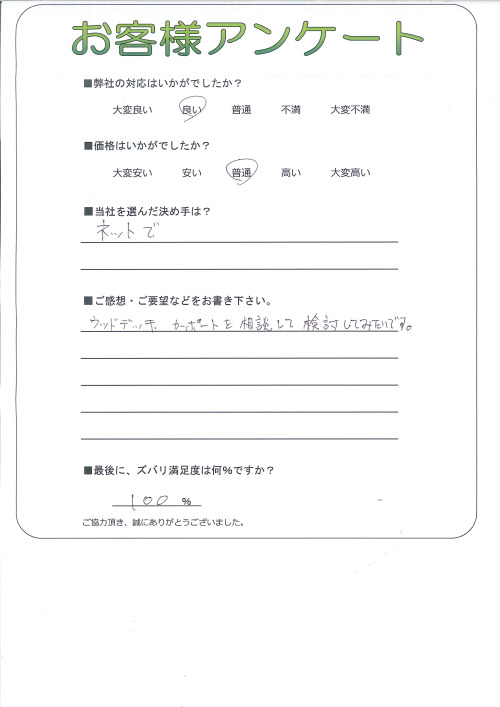 お客様アンケート
■弊社の対応はいかがでしたか？
大変良い 良い 普通 不満 大変不満
■価格はいかがでしたか？
大変安い 安い 普通 高い 大変高い
■当社を選んだ決め手は？
ネットで
■ご感想・ご要望などをお書き下さい。
ウッドデッキ、カーポートを相談して検討してみたいです。
■最後に、ズバリ満足度は何％ですか？
100 ％
ご協力頂き、誠にありがとうございました。